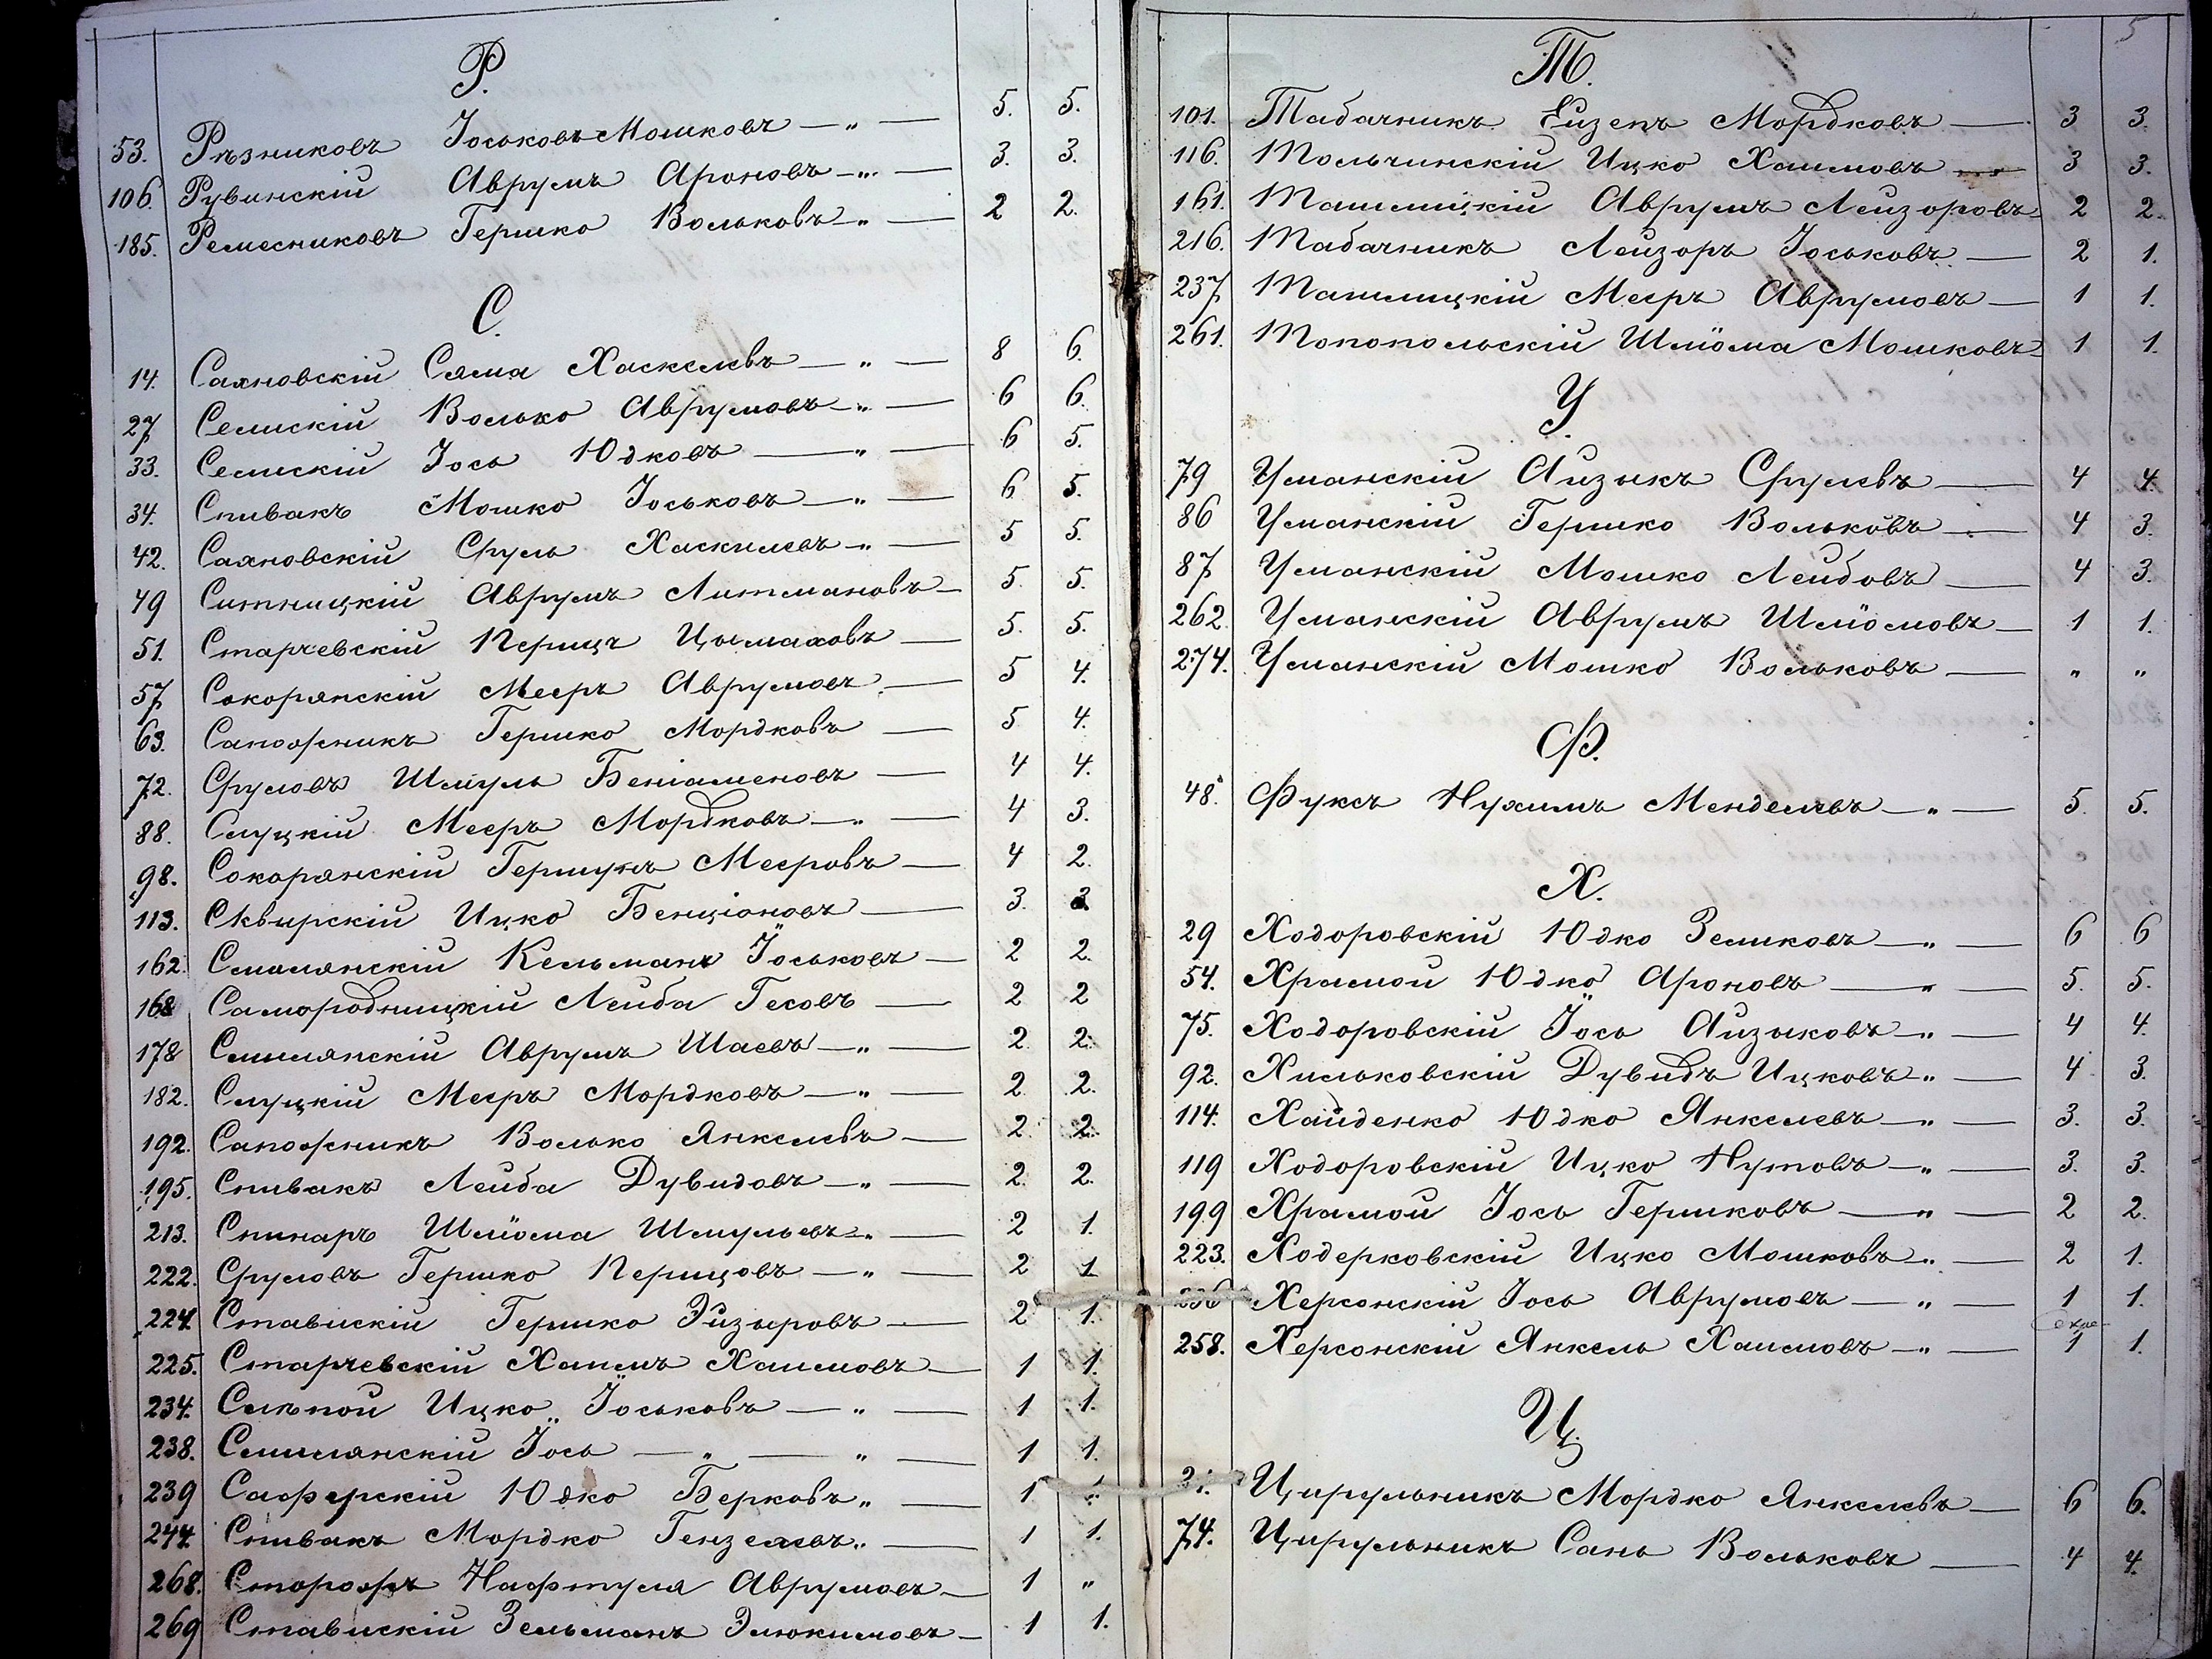 Р.
53. Рѣзниковъ Іоськовъ Мошковъ — „ — 5. 5.
106. Рувинскій Аврумъ Ароновъ — „ — 3. 3.
185. Ремесниковъ Гершко Вольковъ — „ — 2 2.
С.
14. Сахновскій Сяма Хаскелевъ — „ — 8 6.
27 Семискій Волько Аврумовъ — „ — 6 6.
33. Семискій Іось Юдковъ — „ — 6 5.
34. Спивакъ Мошко Іоськовъ — „ — 6 5.
42. Сахновскій Сруль Хаскилевъ — „ — 5 5.
49 Ситницкій Аврумъ Литмановъ — 5. 5.
51. Старчевскій Перицъ Цымаховъ — 5. 5.
57 Сокорянскій Мееръ Аврумовъ — 5 4.
63. Сапожникъ Гершко Мордковъ — 5 4.
72. Сруловъ Шмуль Беніаменовъ — 4 4.
88. Слуцкій Мееръ Мордковъ — „ — 4 3.
98. Сокорянскій Гершукъ Мееровъ — 4 2.
113. Сквирскій Ицко Бенціоновъ — 3. 3.
162. Смилянскій Кельманъ Іоськовъ — 2 2.
168 Самородницкій Лейба Гесовъ — 2 2
178 Смилянскій Аврумъ Шаевъ — „ — 2. 2.
182. Слуцкій Мееръ Мордковъ — „ — 2. 2.
192. Сапожникъ Волько Янкелевъ — 2. 2.
195. Спивакъ Лейба Дувидовъ — „ — 2. 2.
213. Спинаръ Шлiома Шмульевъ „ — 2 1.
222. Сруловъ Гершко Перицовъ — „ — 2 1
224. Ставискій Гершко Эйзыровъ — 2 1.
225. Старчевскій Хаимъ Хаимовъ — 1 1.
234. Слѣпой Ицко Іоськовъ — „ — 1 1.
238. Смилянскій Іось — „ — „ — 1 1.
239 Сафярскій Юдко Берковъ „ — 1
244. Спивакъ Мордко Гензелевъ „ — 1 1.
268. Сторожъ Нафтула Аврумовъ — 1 „
269 Ставискій Зельманъ Элюкимовъ — 1 1.
5
Т.
101. Табачникъ Ейзепъ Мордковъ — 3 3.
116. Тольчинскій Ицко Хаимовъ — 3 3.
161. Ташлицкій Аврумъ Лейзоровъ 2 2.
216. Табачникъ Лейзоръ Іоськовъ — 2 1.
237 Ташлицкій Мееръ Аврумовъ — 1 1.
261. Топопольскій Шлiома Мошковъ 1 1.
У
79 Уманскій Айзикъ Срулевъ — 4 4.
86 Уманскій Гершко Вольковъ — 4 3.
87 Уманскій Мошко Лейбовъ — 4 3.
262. Уманскій Аврумъ Шлiомовъ — 1 1.
274. Уманскій Мошко Вольковъ — „ „
Ф.
48. Фуксъ Нухимъ Менделевъ — „ — 5. 5.
Х.
29 Ходоровскій Юдко Зеликовъ — „ — 6 6
54. Храмой Юдко Ароновъ — „ — 5. 5.
75. Ходоровскій Іось Айзиковъ — „ — 4 4.
92. Хильковскій Дувидъ Ицковъ „ — 4 3.
114. Хайденко Юдко Янкелевъ — „ — 3. 3.
119 Ходоровскій Ицко Нутовъ — „ — 3. 3.
199 Храмой Іось Гершковъ — „ — 2 2.
223. Ходерковскій Ицко Мошковъ „ — 2 1.
236 Херсонскій Іось Аврумовъ — „ — 1 1.
258. Херсонскій Янкель Хаимовъ — „ — 1 1.
Ц.
Цирульникъ Мордко Янкелевъ — 6 6.
74. Цирульникъ Сань Вольковъ — 4 4.